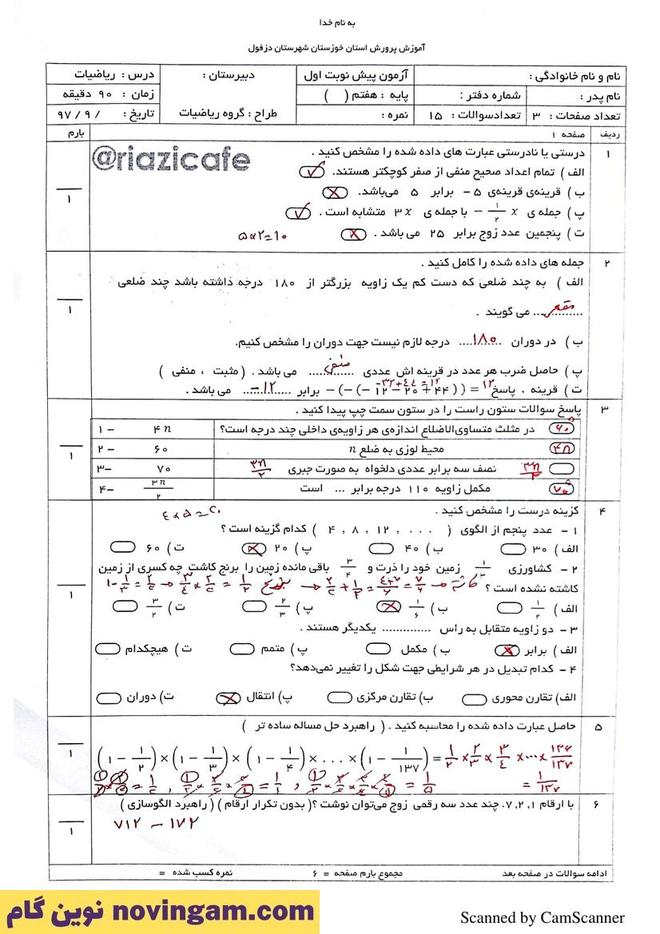 به نام خدا
آموزش پرورش استان خوزستان شهرستان دزفول
نام و نام خانوادگی : آزمون پیش نوبت اول دبیرستان : درس : ریاضیات
نام پدر : شماره دفتر : پایه : هفتم ( ) زمان : ۹۰ دقیقه
تعداد صفحات : ۳ تعدادسوالات : ۱۵ نمره : طراح : گروه ریاضیات تاریخ : / ۹ / ۹۷
ردیف صفحه ۱ بارم
@riazicafe
۱ درستی یا نادرستی عبارت های داده شده را مشخص کنید .
الف ) تمام اعداد صحیح منفی از صفر کوچکتر هستند. ✓
ب ) قرینه‌ی قرینه‌ی ۵- برابر ۵ می‌باشد. ×
پ ) جمله ی -۱/۲ x با جمله ی ۳x متشابه است . ✓
ت ) پنجمین عدد زوج برابر ۲۵ می باشد . × ۵×۲=۱۰
۱
۲ جمله های داده شده را کامل کنید .
الف ) به چند ضلعی که دست کم یک زاویه بزرگتر از ۱۸۰ درجه داشته باشد چند ضلعی
..مقعر.. می گویند .
ب ) در دوران ..۱۸۰.. درجه لازم نیست جهت دوران را مشخص کنیم.
پ ) حاصل ضرب هر عدد در قرینه اش عددی ..منفی.. می باشد . ( مثبت ، منفی )
ت ) قرینه ، پاسخ -(-(-۱۲-۲۰+۴۴)) = ۱۲ برابر ..-۱۲.. می باشد .
-۳۲+۴۴=۱۲
۱
۳ پاسخ سوالات ستون راست را در ستون سمت چپ پیدا کنید .
۶۰ در مثلث متساوی‌الاضلاع اندازه‌ی هر زاویه‌ی داخلی چند درجه است؟ ۴n ۱-
۴n محیط لوزی به ضلع n ۶۰ ۲-
۳n/۲ نصف سه برابر عددی دلخواه به صورت جبری ۳n/۲ ۷۰ ۳-
۷۰ مکمل زاویه ۱۱۰ درجه برابر ... است ۳n/۲ ۴-
۱
۴ گزینه درست را مشخص کنید . ۴×۵=۲۰
۱ - عدد پنجم از الگوی ( ۴ , ۸ , ۱۲ , . . . ) کدام گزینه است ؟
الف ) ۳۰ ب ) ۴۰ پ ) ۲۰ × ت ) ۶۰
۲ - کشاورزی ۱/۳ زمین خود را ذرت و ۳/۴ باقی مانده زمین را برنج کاشت چه کسری از زمین
کاشته نشده است ؟
الف ) ۱/۲ ب ) ۱/۶ × پ ) ۲/۳ ت ) ۳/۲
۳ - دو زاویه متقابل به راس .............. یکدیگر هستند .
الف ) برابر × ب ) مکمل پ ) متمم ت ) هیچکدام
۴ - کدام تبدیل در هر شرایطی جهت شکل را تغییر نمی‌دهد؟
الف) تقارن محوری ب) تقارن مرکزی پ) انتقال × ت) دوران
۱
۵ حاصل عبارت داده شده را محاسبه کنید . ( راهبرد حل مساله ساده تر )
(۱-۱/۲)×(۱-۱/۳)×(۱-۱/۴)×...×(۱-۱/۱۳۷)=۱/۲×۲/۳×۳/۴×...×۱۳۶/۱۳۷
=۱/۱۳۷
۱
۶ با ارقام ۱، ۲، ۷، چند عدد سه رقمی زوج می‌توان نوشت ؟ ( بدون تکرار ارقام ) ( راهبرد الگوسازی )
۷۱۲ - ۱۷۲
۱
ادامه سوالات در صفحه بعد مجموع بارم صفحه = ۶ نمره کسب شده =
novingam.com نوین گام
Scanned by CamScanner